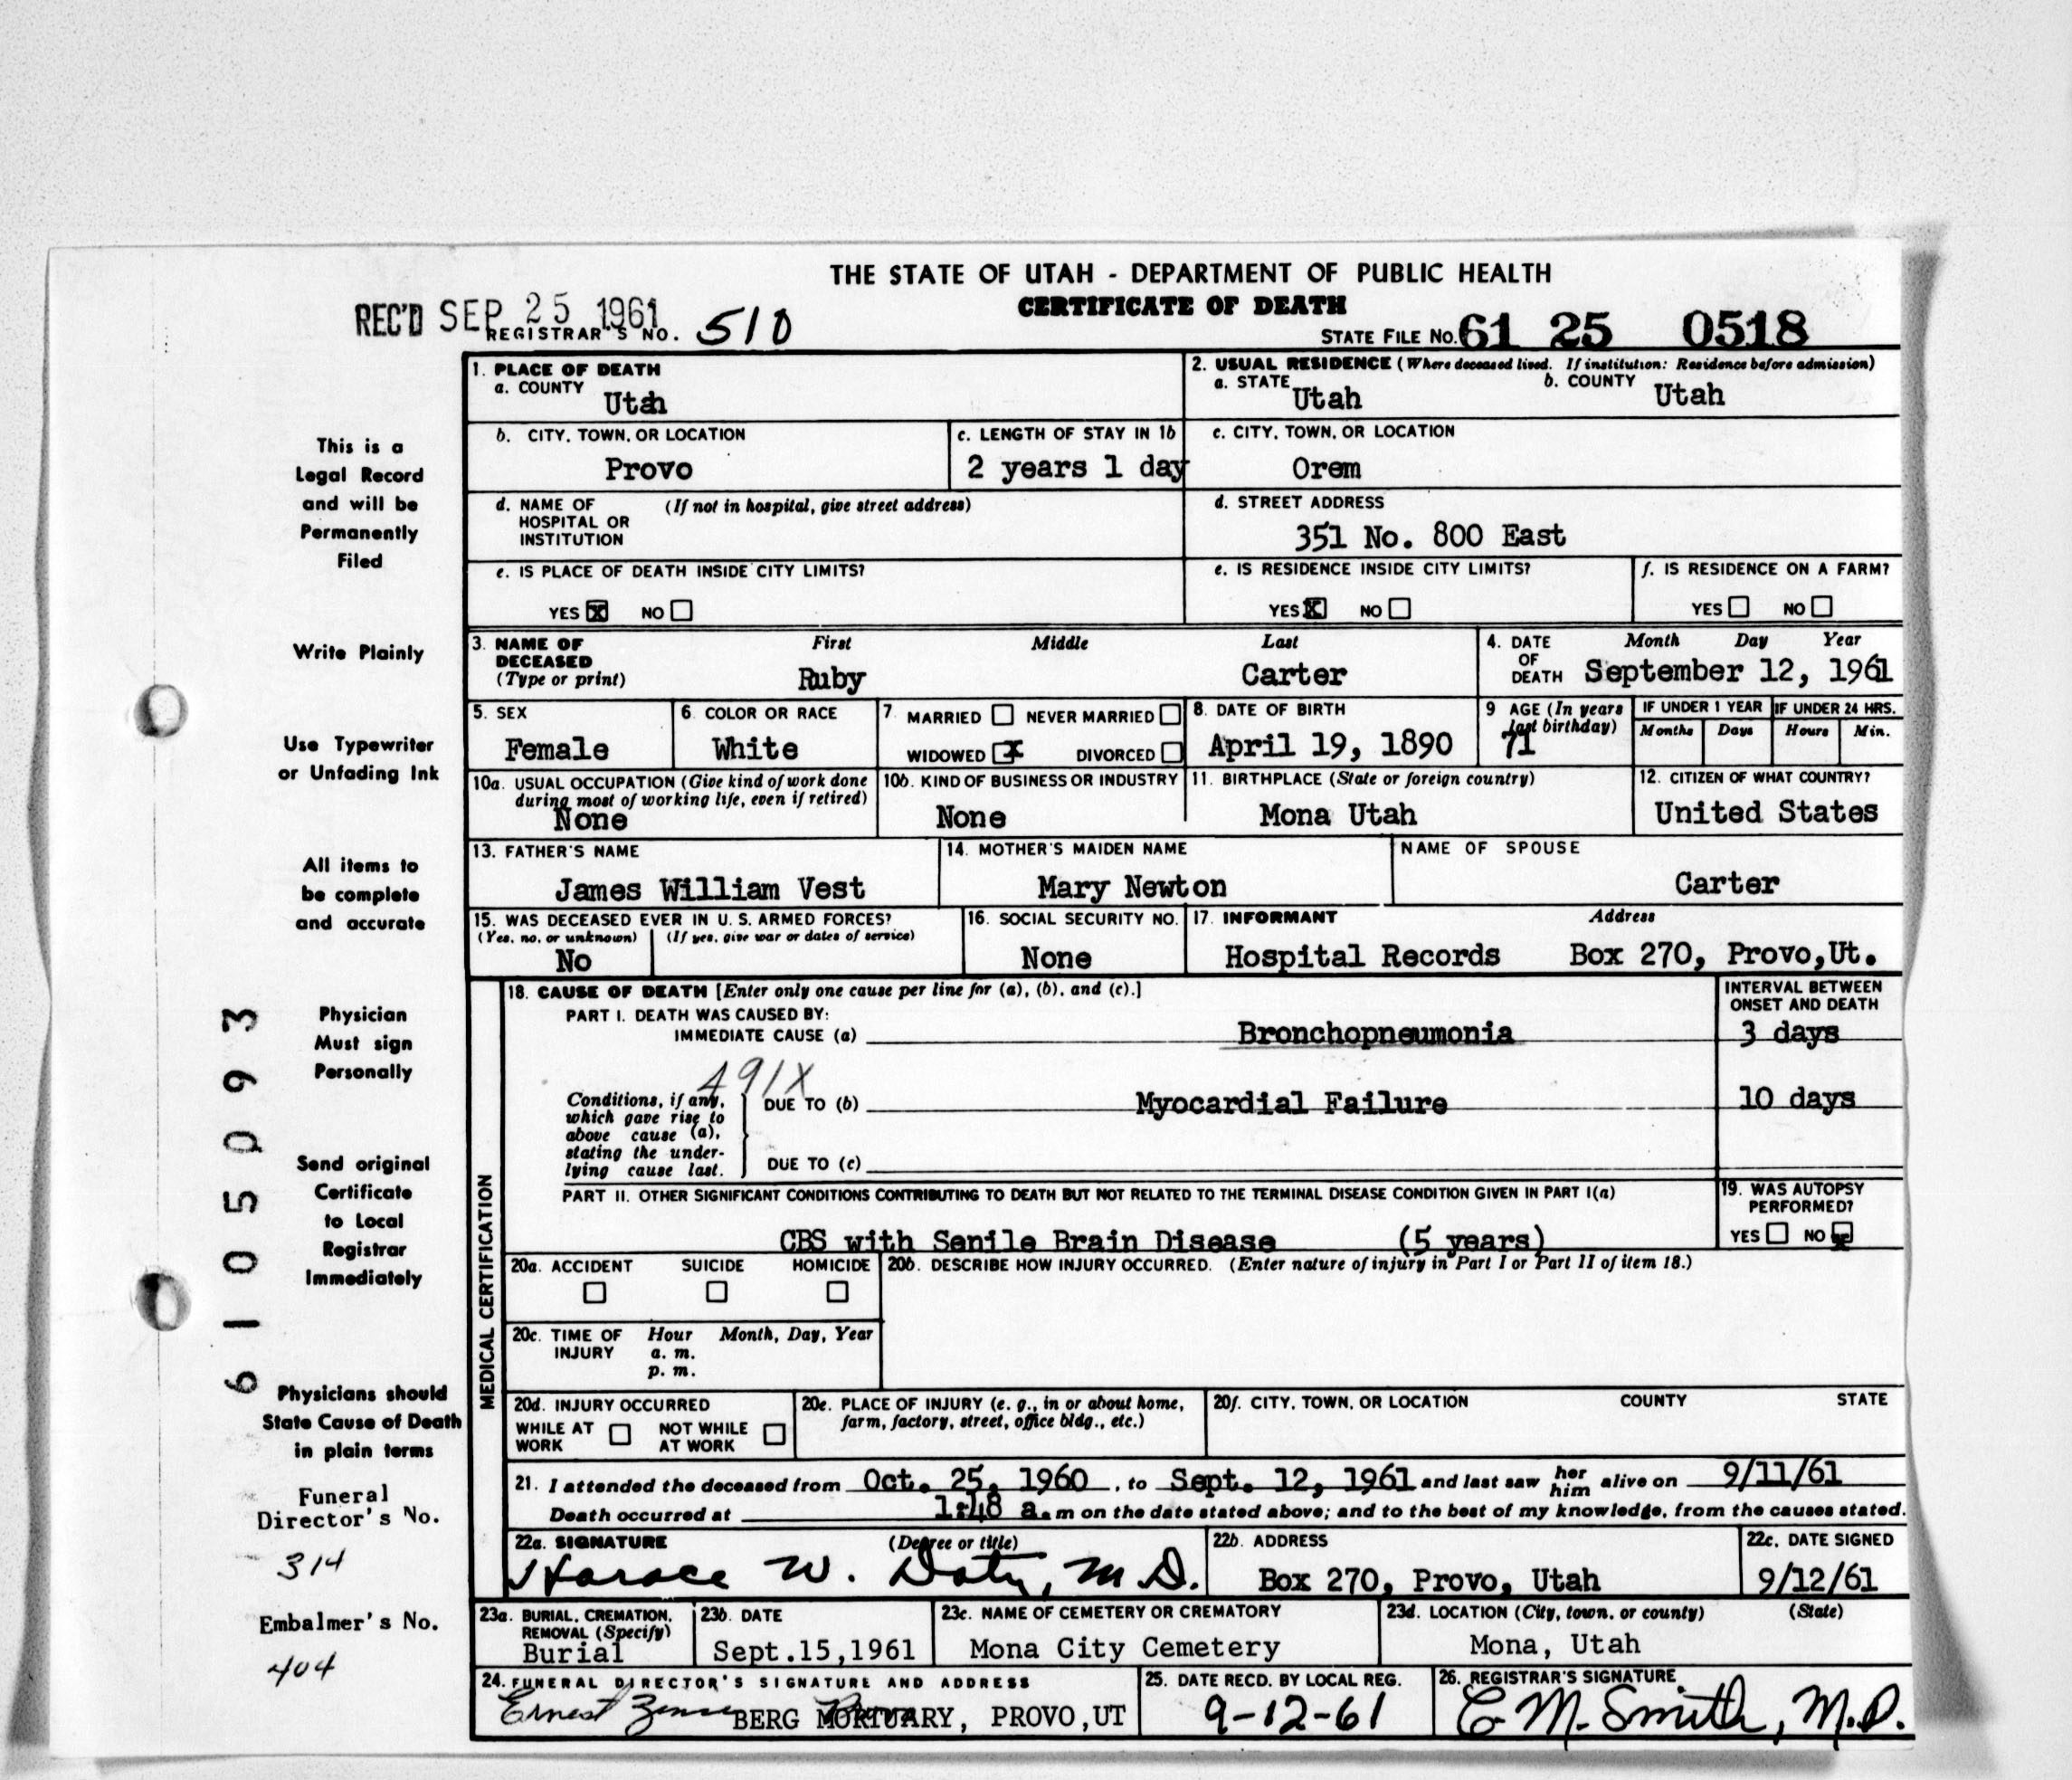 THE STATE OF UTAH - DEPARTMENT OF PUBLIC HEALTH
CERTIFICATE OF DEATH
REC'D SEP 25 1961
REGISTRAR'S NO. 510
STATE FILE NO. 61 25 0518
1. PLACE OF DEATH
a. COUNTY
Utah
2. USUAL RESIDENCE (Where deceased lived. If institution: Residence before admission)
a. STATE Utah b. COUNTY Utah
b. CITY, TOWN, OR LOCATION
Provo
c. LENGTH OF STAY IN 1b
2 years 1 day
c. CITY, TOWN, OR LOCATION
Orem
d. NAME OF HOSPITAL OR INSTITUTION (If not in hospital, give street address)
d. STREET ADDRESS
351 No. 800 East
e. IS PLACE OF DEATH INSIDE CITY LIMITS?
YES X NO
e. IS RESIDENCE INSIDE CITY LIMITS?
YES X NO
f. IS RESIDENCE ON A FARM?
YES NO
3. NAME OF DECEASED (Type or print)
First Middle Last
Ruby Carter
4. DATE OF DEATH Month Day Year
September 12, 1961
5. SEX
Female
6. COLOR OR RACE
White
7. MARRIED NEVER MARRIED
WIDOWED X DIVORCED
8. DATE OF BIRTH
April 19, 1890
9 AGE (In years last birthday)
71
IF UNDER 1 YEAR IF UNDER 24 HRS.
Months Days Hours Min.
10a. USUAL OCCUPATION (Give kind of work done during most of working life, even if retired)
None
10b. KIND OF BUSINESS OR INDUSTRY
None
11. BIRTHPLACE (State or foreign country)
Mona Utah
12. CITIZEN OF WHAT COUNTRY?
United States
13. FATHER'S NAME
James William Vest
14. MOTHER'S MAIDEN NAME
Mary Newton
NAME OF SPOUSE
Carter
15. WAS DECEASED EVER IN U. S. ARMED FORCES?
(Yes, no, or unknown) (If yes, give war or dates of service)
No
16. SOCIAL SECURITY NO.
None
17. INFORMANT Address
Hospital Records Box 270, Provo,Ut.
MEDICAL CERTIFICATION
18. CAUSE OF DEATH [Enter only one cause per line for (a), (b), and (c).]
INTERVAL BETWEEN ONSET AND DEATH
PART I. DEATH WAS CAUSED BY:
IMMEDIATE CAUSE (a) Bronchopneumonia 3 days
491X
Conditions, if any, which gave rise to above cause (a), stating the underlying cause last.
DUE TO (b) Myocardial Failure 10 days
DUE TO (c)
PART II. OTHER SIGNIFICANT CONDITIONS CONTRIBUTING TO DEATH BUT NOT RELATED TO THE TERMINAL DISEASE CONDITION GIVEN IN PART I(a)
CBS with Senile Brain Disease (5 years)
19. WAS AUTOPSY PERFORMED?
YES NO X
20a. ACCIDENT SUICIDE HOMICIDE
20b. DESCRIBE HOW INJURY OCCURRED. (Enter nature of injury in Part I or Part II of item 18.)
20c. TIME OF INJURY Hour Month, Day, Year
a. m.
p. m.
20d. INJURY OCCURRED
WHILE AT WORK NOT WHILE AT WORK
20e. PLACE OF INJURY (e. g., in or about home, farm, factory, street, office bldg., etc.)
20f. CITY, TOWN, OR LOCATION COUNTY STATE
21. I attended the deceased from Oct. 25, 1960, to Sept. 12, 1961 and last saw her him alive on 9/11/61
Death occurred at 1:48 a.m on the date stated above; and to the best of my knowledge, from the causes stated.
22a. SIGNATURE (Degree or title)
Horace W. Doty, M D.
22b. ADDRESS
Box 270, Provo, Utah
22c. DATE SIGNED
9/12/61
23a. BURIAL, CREMATION, REMOVAL (Specify)
Burial
23b. DATE
Sept.15,1961
23c. NAME OF CEMETERY OR CREMATORY
Mona City Cemetery
23d. LOCATION (City, town, or county) (State)
Mona, Utah
24. FUNERAL DIRECTOR'S SIGNATURE AND ADDRESS
Ernest BERG MORTUARY, PROVO,UT
25. DATE RECD. BY LOCAL REG.
9-12-61
26. REGISTRAR'S SIGNATURE
C M. Smith, M.D.
This is a
Legal Record
and will be
Permanently
Filed
Write Plainly
Use Typewriter
or Unfading Ink
All items to
be complete
and accurate
Physician
Must sign
Personally
Send original
Certificate
to Local
Registrar
Immediately
Physicians should
State Cause of Death
in plain terms
Funeral
Director's No.
314
Embalmer's No.
404